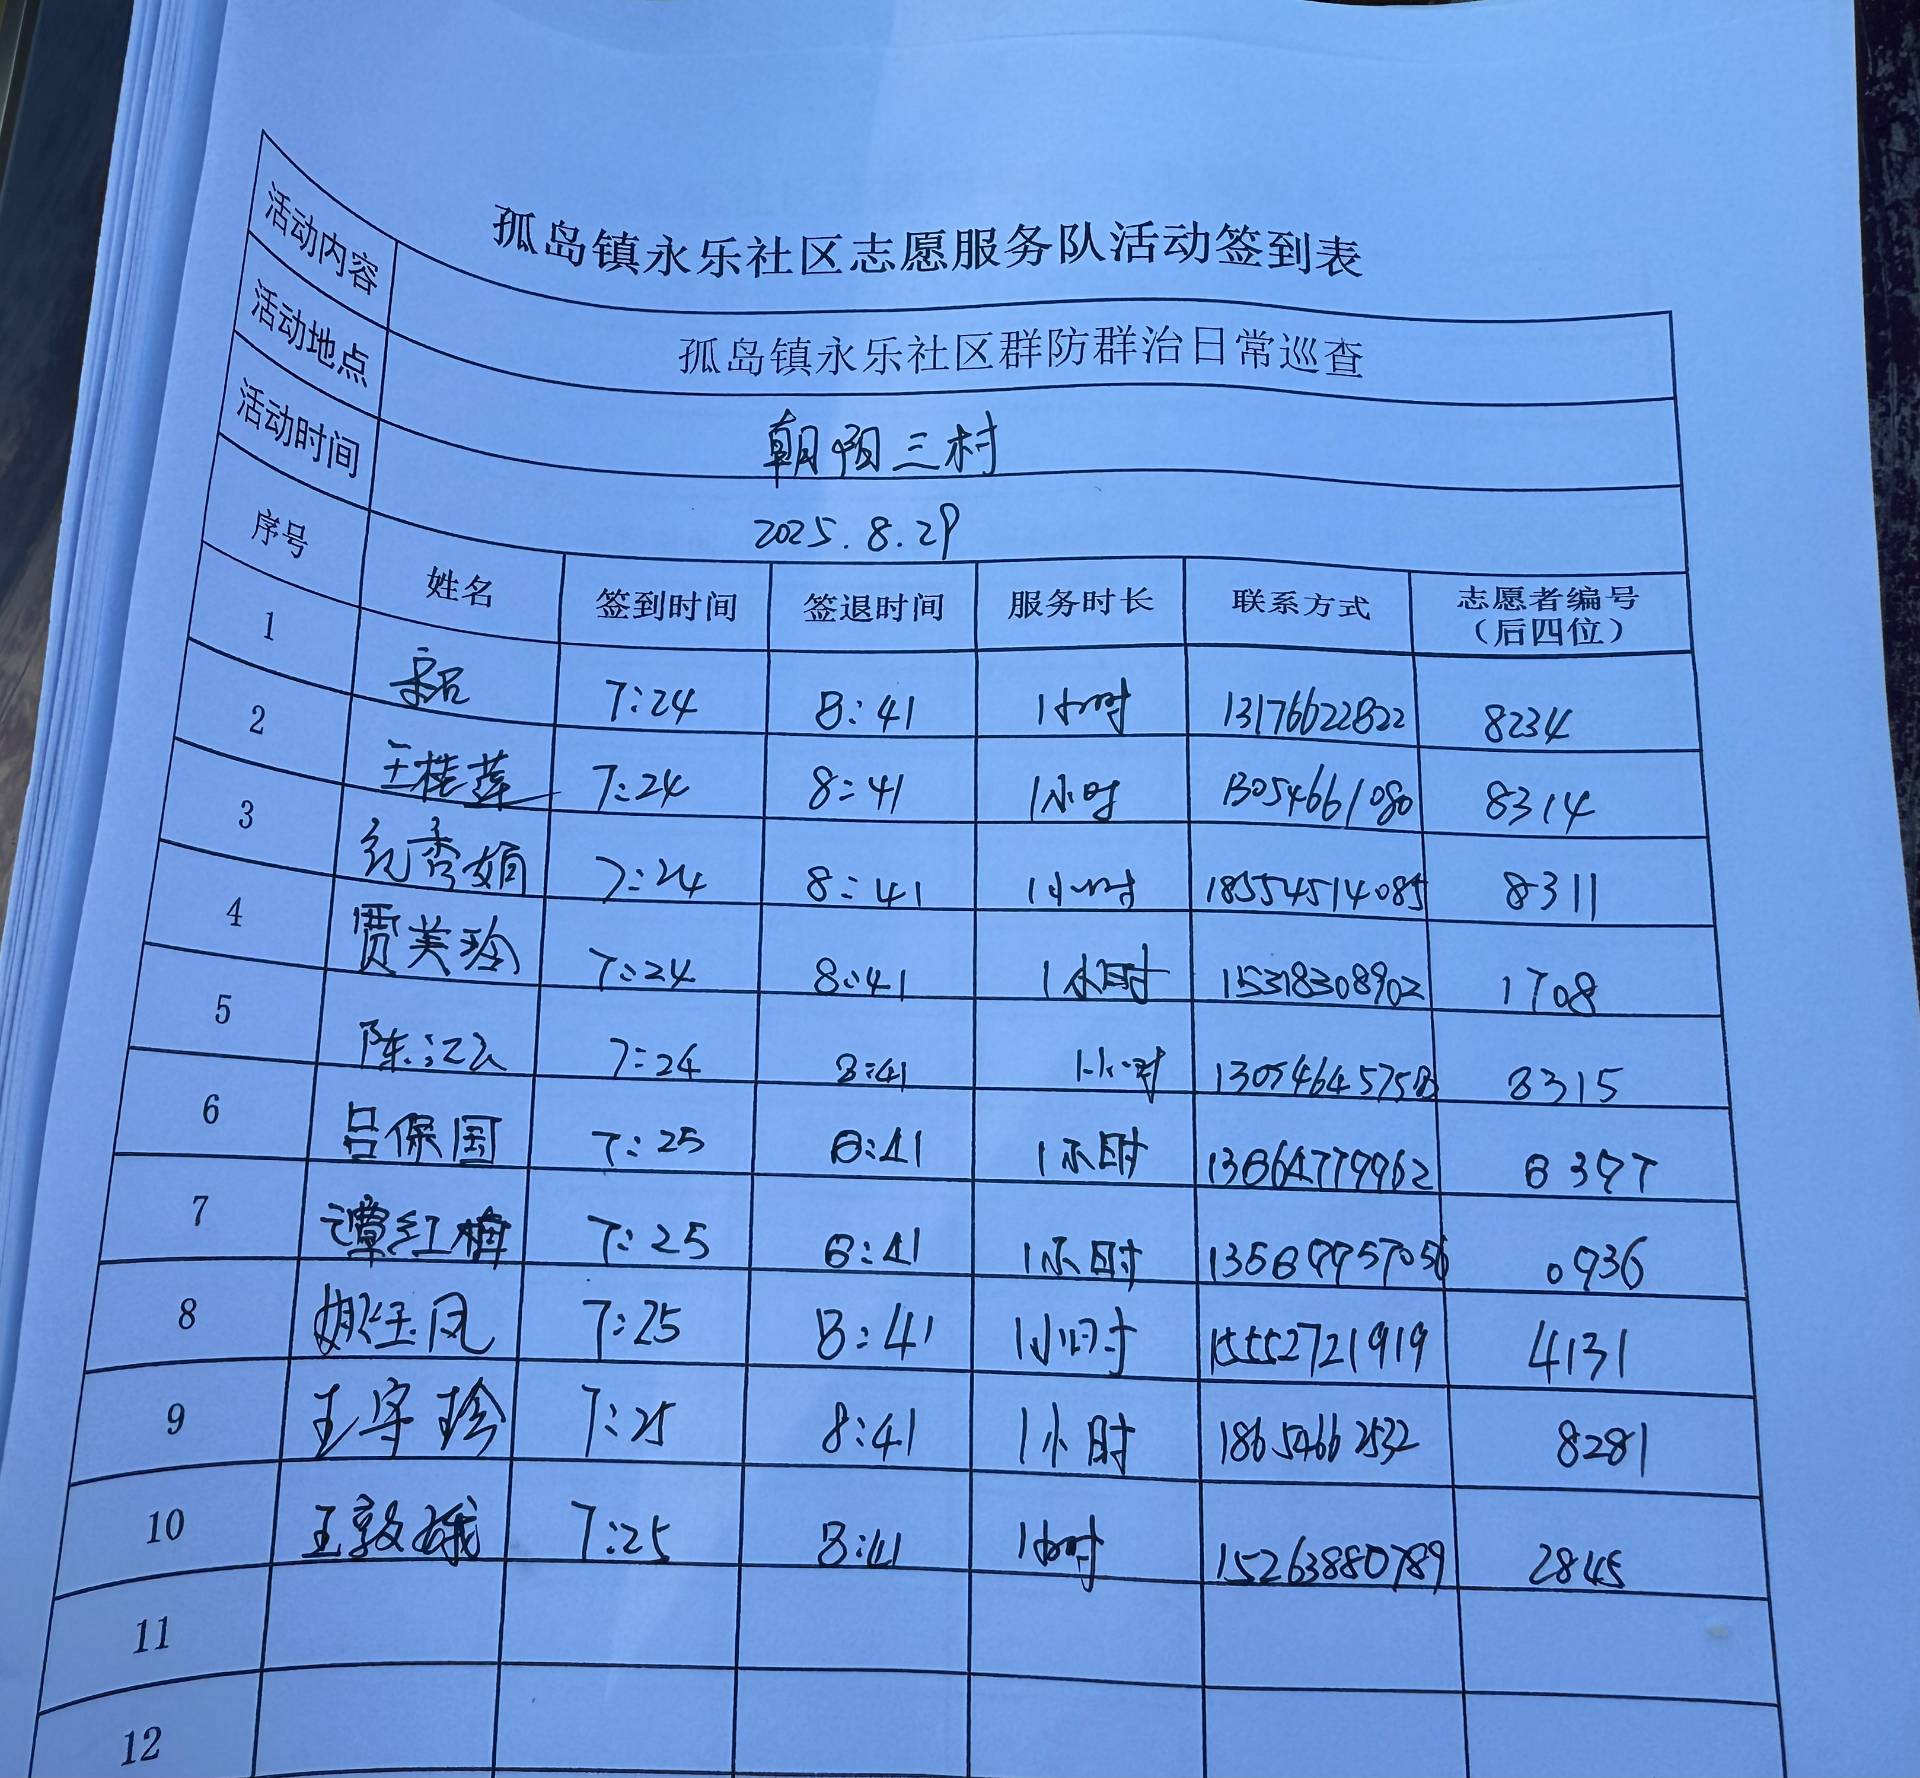 孤岛镇永乐社区志愿服务队活动签到表
活动内容 孤岛镇永乐社区群防群治日常巡查
活动地点 朝阳三村
活动时间 2025.8.29
序号 姓名 签到时间 签退时间 服务时长 联系方式 志愿者编号（后四位）
1 7:24 8:41 1小时 13176622822 8234
2 王桂莲 7:24 8:41 1小时 13054661080 8314
3 纪秀娟 7:24 8:41 1小时 18554514085 8311
4 贾美玲 7:24 8:41 1小时 15318308902 1708
5 陈江云 7:24 8:41 1小时 13054645758 8315
6 吕保国 7:25 8:41 1小时 13864779962 8397
7 谭红梅 7:25 8:41 1小时 0936
8 姚玉凤 7:25 8:41 1小时 15552721919 4131
9 王守珍 7:25 8:41 1小时 18654662532 8281
10 王敦娥 7:25 8:41 1小时 15263880789 2845
11
12